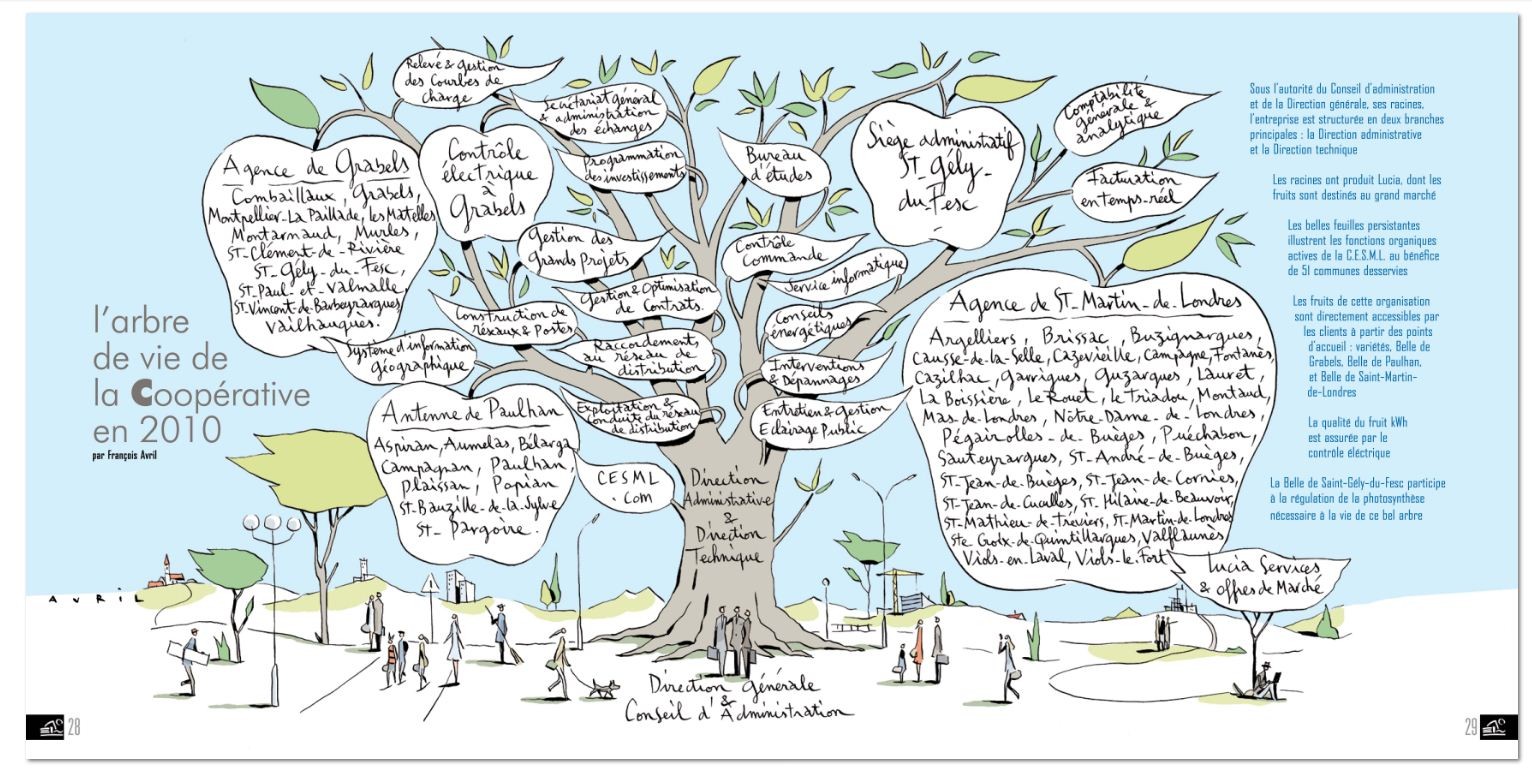 l'arbre
de vie de
la Coopérative
en 2010
par François Avril
Relevé & Gestion
des Courbes de
Charge
Secrétariat général
& administration
des échanges
Programmation
des investissements
Bureau
d'études
Siège administratif
St Gély-
du-Fesc
Comptabilité
générale &
analytique
Facturation
en temps-réel
Agence de Grabels
Combaillaux, Grabels,
Montpellier-La Paillade, les Matelles
Montarnaud, Murles,
St-Clément-de-Rivière
St-Gély-du-Fesc,
St-Paul-et-Valmalle,
St-Vincent-de-Barbeyrargues,
Vailhauquès.
Contrôle
électrique
à
Grabels
Gestion des
Grands Projets
Contrôle
Commande
Service informatique
Gestion & Optimisation
de Contrats.
Construction de
réseaux & Postes
Conseils
énergétiques
Système d'information
géographique
Raccordement
au réseau de
distribution
Interventions
& Dépannages
Exploitation &
Conduite du réseau
de distribution
Entretien & gestion
Eclairage Public
Antenne de Paulhan
Aspiran, Aumelas, Bélarga
Campagnan, Paulhan,
Plaissan, Popian
St-Bauzille-de-la-Sylve
St-Pargoire.
CESML
.Com
Agence de St-Martin-de-Londres
Argelliers, Brissac, Buzignargues,
Causse-de-la-Selle, Cazevieille, Campagne, Fontanès,
Cazilhac, Garrigues, Guzargues, Lauret,
La Boissière, Le Rouet, le Triadou, Montaud,
Mas-de-Londres, Nôtre-Dame-de-Londres,
Pégairolles-de-Buèges, Puéchabon,
Sauteyrargues, St-André-de-Buèges,
St-Jean-de-Buèges, St-Jean-de-Cornies,
St-Jean-de-Cuculles, St-Hilaire-de-Beauvoir,
St-Mathieu-de-Tréviers, St-Martin-de-Londres
Ste Croix-de-Quintillargues, Valflaunès
Viols-en-Laval, Viols-le-Fort
Lucia Services
& offres de Marché
Direction
Administrative
&
Direction
Technique
Direction générale
&
Conseil d'Administration
Sous l'autorité du Conseil d'administration
et de la Direction générale, ses racines,
l'entreprise est structurée en deux branches
principales : la Direction administrative
et la Direction technique
Les racines ont produit Lucia, dont les
fruits sont destinés au grand marché
Les belles feuilles persistantes
illustrent les fonctions organiques
actives de la C.E.S.M.L. au bénéfice
de 51 communes desservies
Les fruits de cette organisation
sont directement accessibles par
les clients à partir des points
d'accueil : variétés, Belle de
Grabels, Belle de Paulhan,
et Belle de Saint-Martin-
de-Londres
La qualité du fruit kWh
est assurée par le
contrôle électrique
La Belle de Saint-Gély-du-Fesc participe
à la régulation de la photosynthèse
nécessaire à la vie de ce bel arbre
AVRIL
28
29